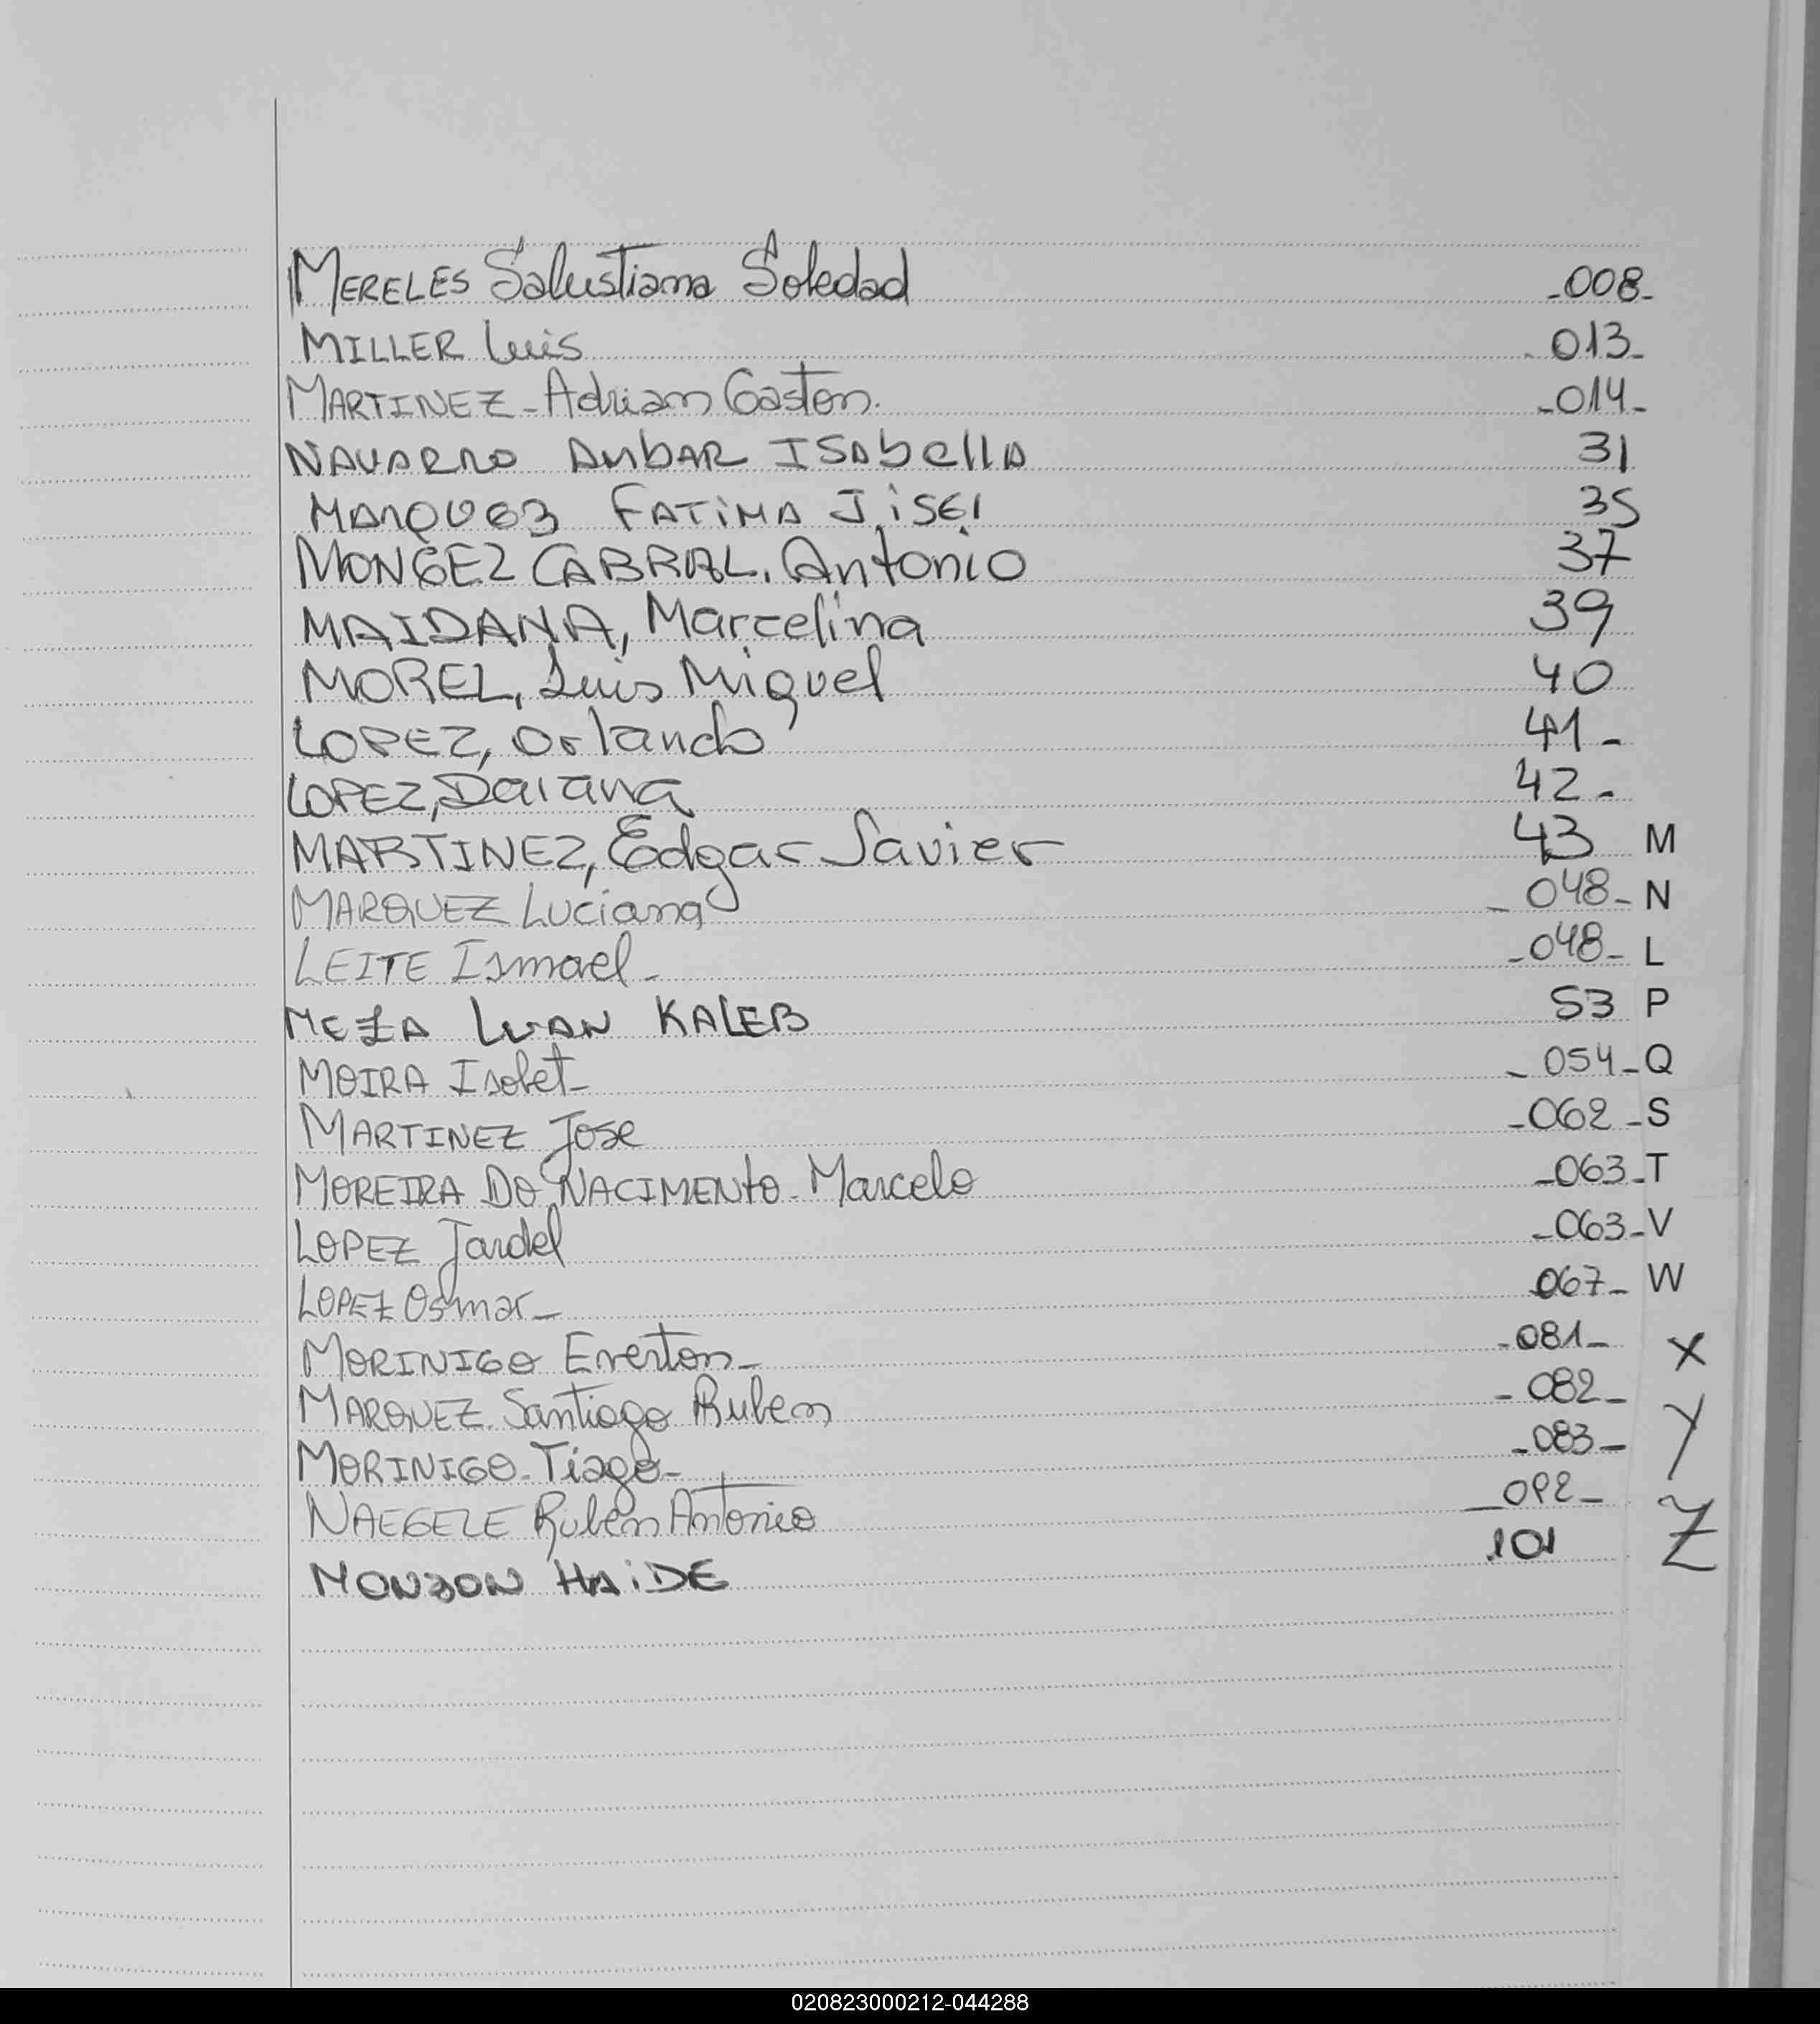 MERELES Salustiana Soledad -008-
MILLER Luis 013-
MARTINEZ - Adrian Gaston. -014-
NAVARRO AMBAR ISAbellA 31
MARQUEZ FATIMA JiSEl 35
MONGEZ CABRAL, Antonio 37
MAIDANA, Marcelina 39
MOREL, Luis Miguel 40
LOPEZ, Orlando 41-
LOPEZ, Daiana 42-
MARTINEZ, Edgar Javier 43 M
MARQUEZ Luciana - 048- N
LEITE Ismael - -048- L
MEZA LUAN KALEB 53 P
MOIRA Isobet - - 054- Q
MARTINEZ Jose -062- S
MOREIRA DO NACIMENTO - Marcelo -063- T
LOPEZ Jardel -063- V
LOPEZ Osmar - 067- W
MORINIGO Everton - -081- X
MARQUEZ Santiago Ruben - 082-
MORINIGO - Tiago - -083- Y
NAEGELE Ruben Antonio - 092-
MONZON HAiDE 101 Z
020823000212-044288